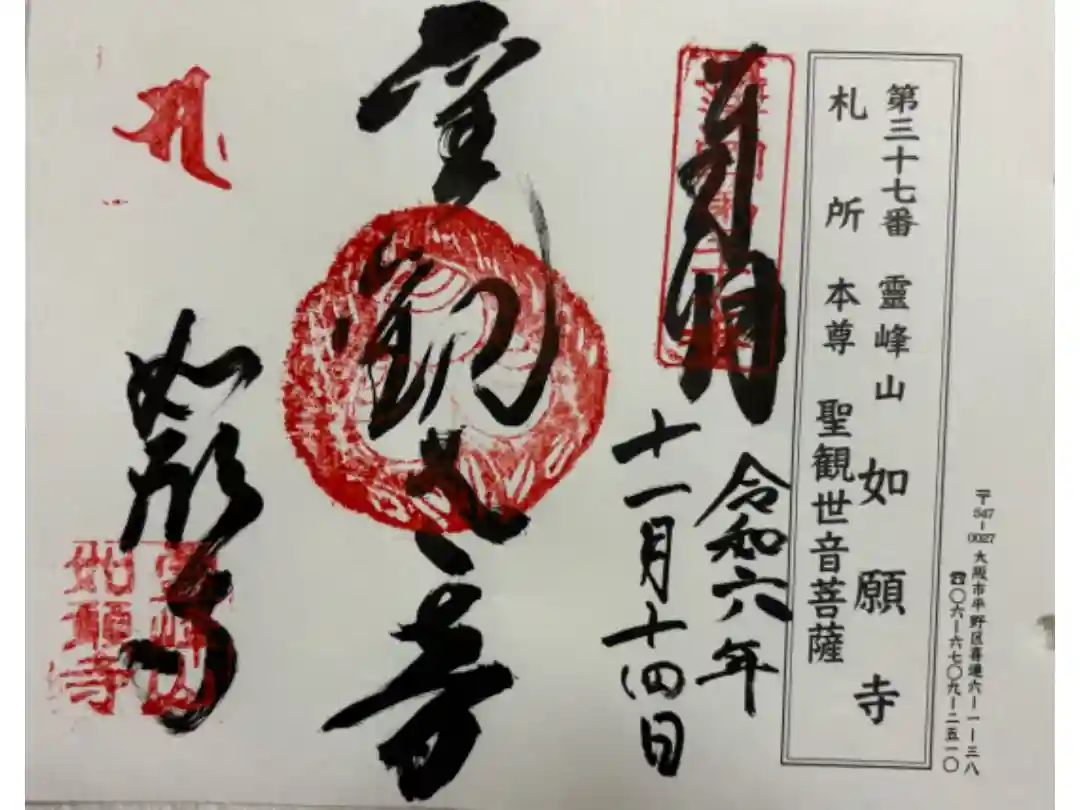 〒547-0027 大阪市平野区喜連六ー一ー三八
☎〇六ー六七〇九ー二五一〇
第三十七番 霊峰山 如願寺
札所本尊 聖観世音菩薩
奉拝
令和六年
十一月十四日
聖観世音
如願寺
霊峰山
如願寺